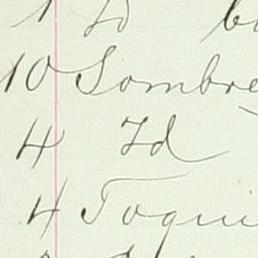 1 Id
10 Sombre
4 Id
4 Toqui